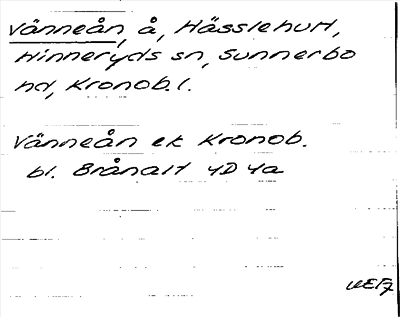 Vänneån, å, Hässlehult,
Hinneryds sn, Sunnerbo
hd, Kronob. l.
Vänneån ek Kronob.
bl. Brånalt 4D 4a